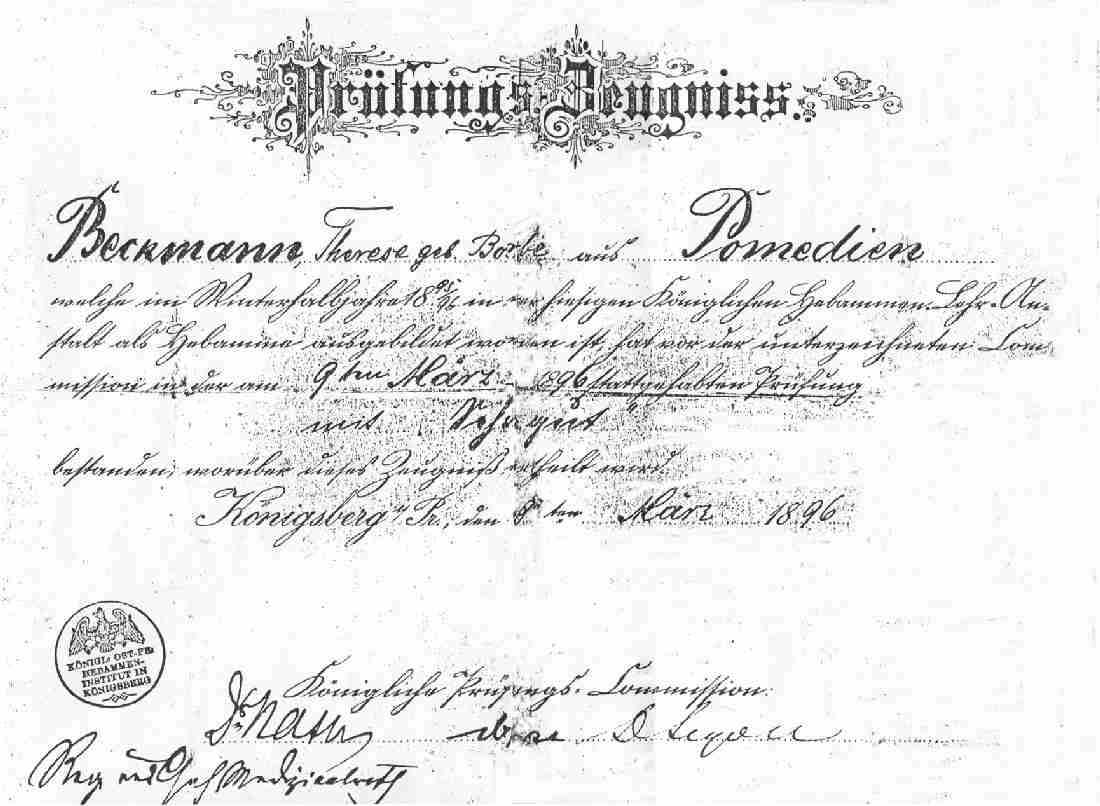 Prüfungs-Zeugniss.
Beckmann, Therese geb. Borbe aus Pomedien
welche im Winterhalbjahre 1895/96 in der hiesigen Königlichen Hebammen-Lehr-An-
stalt als Hebamme ausgebildet worden ist, hat vor der unterzeichneten Com-
mission in der am 9ten März 1896 stattgehabten Prüfung
mit "Sehr gut"
bestanden, worüber dieses Zeugniß ertheilt wird.
Königsberg i/Pr., den ten März 1896
KÖNIGL: OST-PR:
HEBAMMEN-
INSTITUT IN
KÖNIGSBERG
Königliche Prüfungs-Commission.
Dr Nath
Reg. und Geh. Medizinalrath